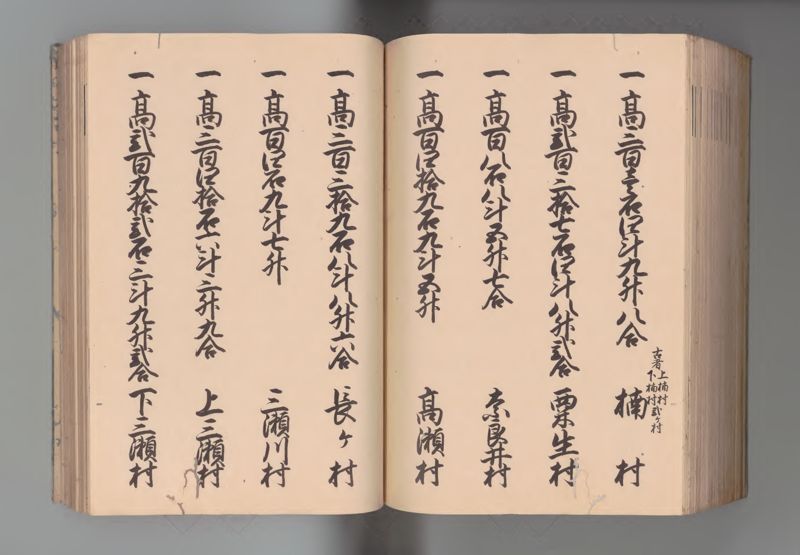 一 高三百壱石四斗九升八合 楠村
古者上楠村
下楠村弐ヶ村
一 高弐百三拾七石四斗八升弐合 粟生村
一 高百八石八斗五升七合 奈良井村
一 高百四拾九石九斗五升 高瀬村
一 高三百三拾九石八斗八升六合 長ヶ村
一 高百四石九斗七升 三瀬川村
一 高三百四拾石六斗三升九合 上三瀬村
一 高弐百九拾弐石三斗九升弐合 下三瀬村